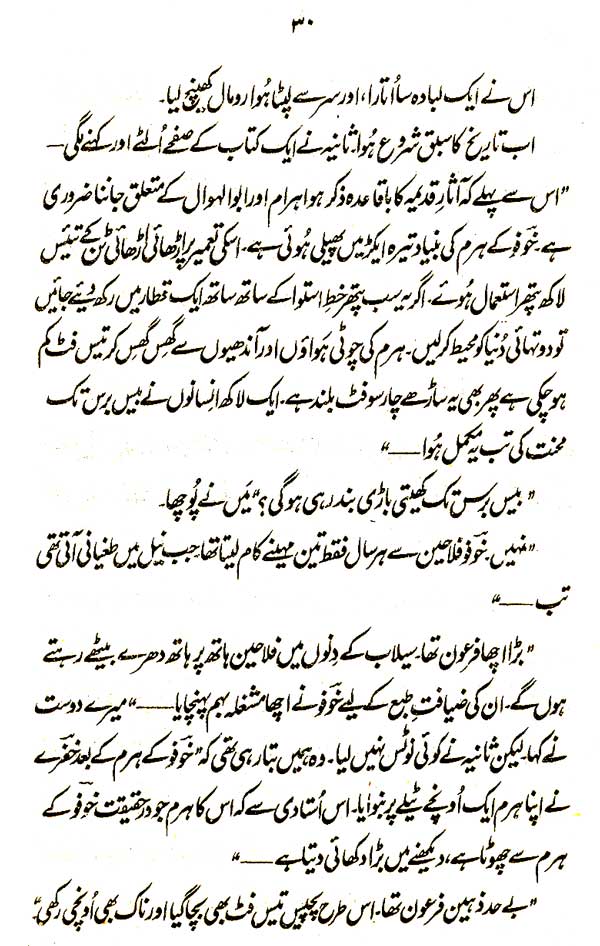 ۳۰
اس نے ایک لبادہ سا اُتارا، اور سر سے لپٹا ہُوا رومال کھینچ لیا۔
اب تاریخ کا سبق شروع ہُوا۔ ثانیہ نے ایک کتاب کے صفحے اُلٹے اور کہنے لگی —
"اس سے پہلے کہ آثارِ قدیمہ کا باقاعدہ ذکر ہو اہرام اور ابوالہوال کے متعلق جاننا ضروری
ہے۔ خوفو کے ہرم کی بنیاد تیرہ ایکڑ میں پھیلی ہُوئی ہے۔ اسکی تعمیر پر اڑھائی اڑھائی ٹن کے تیئس
لاکھ پتھر استعمال ہُوئے۔ اگر یہ سب پتھر خطِ استوا کے ساتھ ساتھ ایک قطار میں رکھ دیئے جائیں
تو دو تہائی دُنیا کو محیط کرلیں۔ ہرم کی چوٹی ہواؤں اور آندھیوں سے گھِس گھِس کر تیس فٹ کم
ہوچکی ہے پھر بھی یہ ساڑھے چار سو فٹ بلند ہے۔ ایک لاکھ انسانوں نے بیس برس تک
محنت کی تب یہ مکمل ہُوا ——"
"بیس برس تک کھیتی باڑی بند رہی ہوگی؟" مَیں نے پُوچھا۔
"نہیں۔ خوفو فلاحین سے ہر سال فقط تین مہینے کام لیتا تھا۔ جب نیل میں طغیانی آتی تھی
تب ——"
"بڑا اچھا فرعون تھا۔ سیلاب کے دِنوں میں فلاحین ہاتھ پر ہاتھ دھرے بیٹھے رہتے
ہوں گے۔ ان کی ضیافتِ طبع کے لیے خوفو نے اچھا مشغلہ بہم پہنچایا ——" میرے دوست
نے کہا۔ لیکن ثانیہ نے کوئی نوٹس نہیں لیا۔ وہ ہمیں بتا رہی تھی کہ "خوفو کے ہرم کے بعد خفرے
نے اپنا ہرم ایک اُونچے ٹیلے پر بنوایا۔ اس اُستادی سے کہ اس کا ہرم جو درحقیقت خوفو کے
ہرم سے چھوٹا ہے، دیکھنے میں بڑا دکھائی دیتا ہے ——"
"بے حد ذہین فرعون تھا۔ اس طرح پچیس تیس فٹ بھی بچا گیا اور ناک بھی اُونچی رکھی۔"